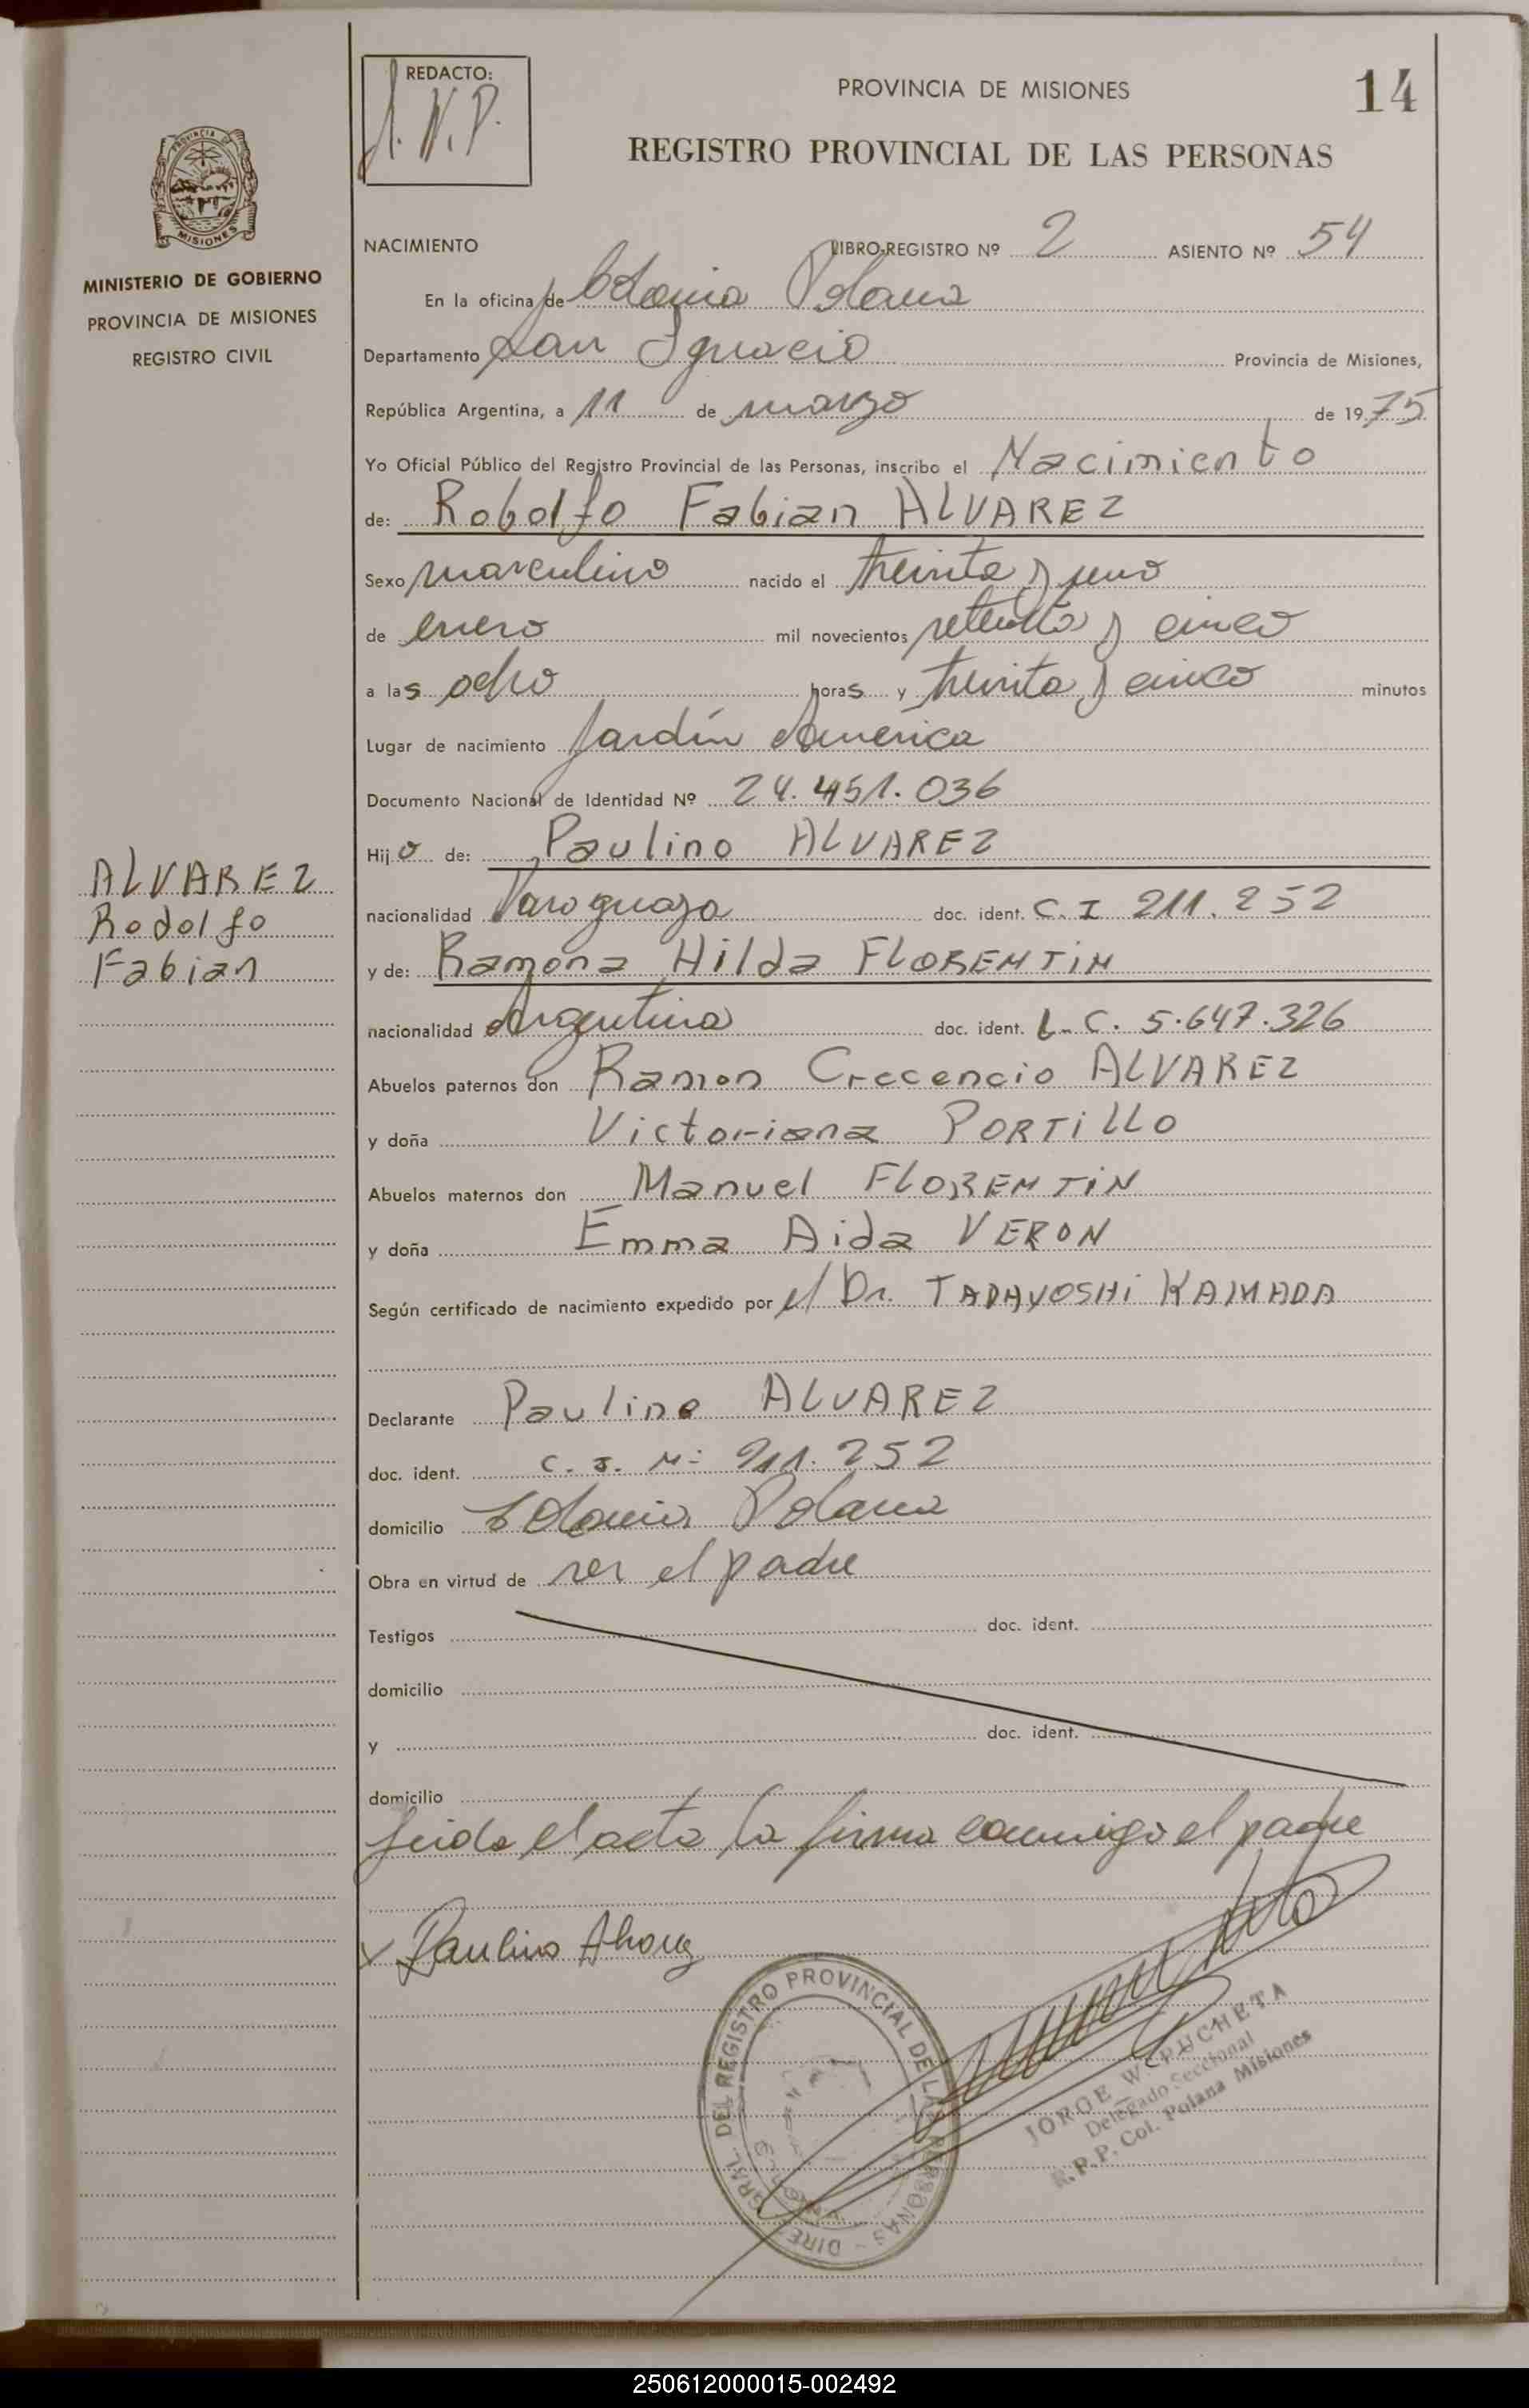 REDACTO:
PROVINCIA DE MISIONES
14
REGISTRO PROVINCIAL DE LAS PERSONAS
PROVINCIA DE
MISIONES
MINISTERIO DE GOBIERNO
PROVINCIA DE MISIONES
REGISTRO CIVIL
NACIMIENTO LIBRO-REGISTRO Nº 2 ASIENTO Nº 54
En la oficina de Colonia Polana
Departamento San Ignacio Provincia de Misiones,
República Argentina, a 11 de marzo de 1975
Yo Oficial Público del Registro Provincial de las Personas, inscribo el Nacimiento
de: Rodolfo Fabian ALVAREZ
Sexo masculino nacido el treinta y uno
de enero mil novecientos setenta y cinco
a las ocho horas y treinta y cinco minutos
Lugar de nacimiento Jardín América
Documento Nacional de Identidad Nº 24.451.036
Hijo de: Paulino ALVAREZ
nacionalidad Paraguaya doc. ident. C. I 211.252
y de: Ramona Hilda FLORENTIN
nacionalidad Argentina doc. ident. L. C. 5.647.326
Abuelos paternos don Ramon Crecencio ALVAREZ
y doña Victoriana PORTILLO
Abuelos maternos don Manuel FLORENTIN
y doña Emma Aida VERON
Según certificado de nacimiento expedido por el Dr. TADAYOSHI KAMADA
Declarante Paulino ALVAREZ
doc. ident. C. I. Nº 211.252
domicilio Colonia Polana
Obra en virtud de ser el padre
Testigos doc. ident.
domicilio
y doc. ident.
domicilio
Leida el acta la firma conmigo el padre
ALVAREZ
Rodolfo
Fabian
x Paulino Alvarez
DIREC. GRAL. DEL REGISTRO PROVINCIAL DE LAS PERSONAS
JORGE W. PUCHETA
Delegado Seccional
R.P.P. Col. Polana Misiones
250612000015-002492